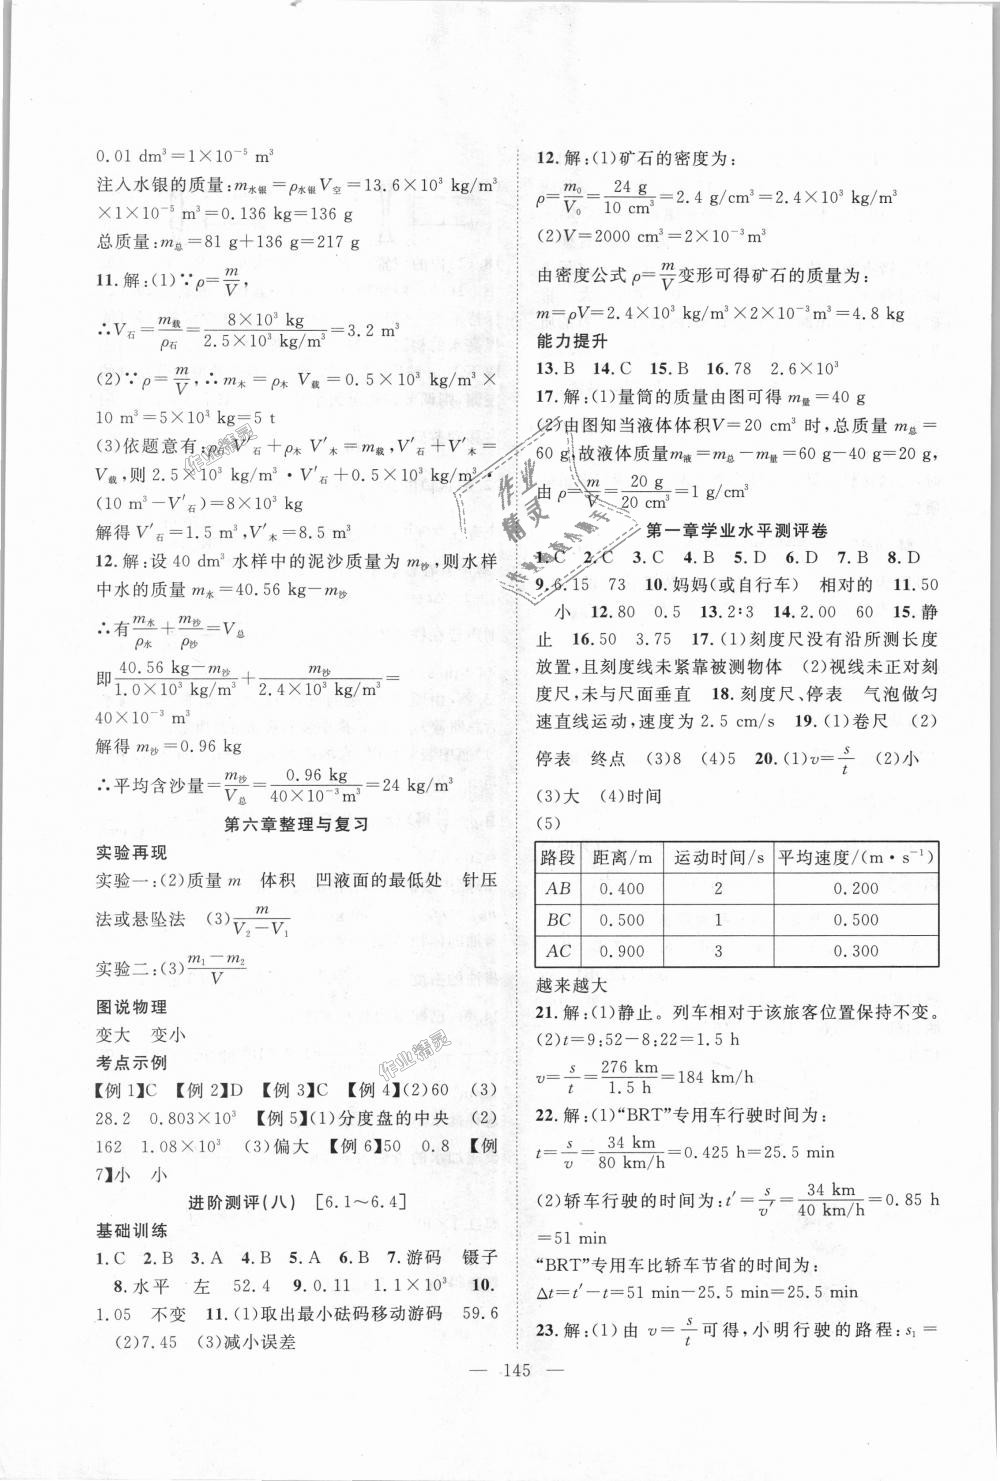 0.01 dm³=1×10⁻⁵ m³
注入水银的质量:m水银=ρ水银V空=13.6×10³ kg/m³
×1×10⁻⁵ m³=0.136 kg=136 g
总质量:m总=81 g+136 g=217 g
11.解:(1)∵ρ=m/V,
∴V石=m载/ρ石=8×10³ kg/2.5×10³ kg/m³=3.2 m³
(2)∵ρ=m/V,∴m木=ρ木 V载=0.5×10³ kg/m³×
10 m³=5×10³ kg=5 t
(3)依题意有:ρ石 V′石+ρ木 V′木=m载,V′石+V′木=
V载,则 2.5×10³ kg/m³·V′石+0.5×10³ kg/m³·
(10 m³-V′石)=8×10³ kg
解得 V′石=1.5 m³,V′木=8.5 m³
12.解:设 40 dm³ 水样中的泥沙质量为 m沙,则水样
中水的质量 m水=40.56 kg-m沙
∴有m水/ρ水+m沙/ρ沙=V总
即40.56 kg-m沙/1.0×10³ kg/m³+m沙/2.4×10³ kg/m³=
40×10⁻³ m³
解得 m沙=0.96 kg
∴平均含沙量=m沙/V总=0.96 kg/40×10⁻³m³=24 kg/m³
第六章整理与复习
实验再现
实验一:(2)质量 m 体积 凹液面的最低处 针压
法或悬坠法 (3)m/V₂-V₁
实验二:(3)m₁-m₂/V
图说物理
变大 变小
考点示例
【例 1】C 【例 2】D 【例 3】C 【例 4】(2)60 (3)
28.2 0.803×10³ 【例 5】(1)分度盘的中央 (2)
162 1.08×10³ (3)偏大 【例 6】50 0.8 【例
7】小 小
进阶测评(八) [6.1～6.4]
基础训练
1.C 2.B 3.A 4.B 5.A 6.B 7.游码 镊子
8.水平 左 52.4 9.0.11 1.1×10³ 10.
1.05 不变 11.(1)取出最小砝码移动游码 59.6
(2)7.45 (3)减小误差
12.解:(1)矿石的密度为:
ρ=m₀/V₀=24 g/10 cm³=2.4 g/cm³=2.4×10³ kg/m³
(2)V=2000 cm³=2×10⁻³m³
由密度公式 ρ=m/V变形可得矿石的质量为:
m=ρV=2.4×10³ kg/m³×2×10⁻³m³=4.8 kg
能力提升
13.B 14.C 15.B 16.78 2.6×10³
17.解:(1)量筒的质量由图可得 m量=40 g
(2)由图知当液体体积V=20 cm³ 时,总质量 m总=
60 g,故液体质量m液=m总-m量=60 g-40 g=20 g,
由 ρ=m/V=20 g/20 cm³=1 g/cm³
第一章学业水平测评卷
1.C 2.C 3.C 4.B 5.D 6.D 7.B 8.D
9.6.15 73 10.妈妈(或自行车) 相对的 11.50
小 12.80 0.5 13.2∶3 14.2.00 60 15.静
止 16.50 3.75 17.(1)刻度尺没有沿所测长度
放置,且刻度线未紧靠被测物体 (2)视线未正对刻
度尺,未与尺面垂直 18.刻度尺、停表 气泡做匀
速直线运动,速度为 2.5 cm/s 19.(1)卷尺 (2)
停表 终点 (3)8 (4)5 20.(1)v=s/t (2)小
(3)大 (4)时间
(5)
路段 距离/m 运动时间/s 平均速度/(m·s⁻¹)
AB 0.400 2 0.200
BC 0.500 1 0.500
AC 0.900 3 0.300
越来越大
21.解:(1)静止。列车相对于该旅客位置保持不变。
(2)t=9:52-8:22=1.5 h
v=s/t=276 km/1.5 h=184 km/h
22.解:(1)“BRT”专用车行驶时间为:
t=s/v=34 km/80 km/h=0.425 h=25.5 min
(2)轿车行驶的时间为:t′=s/v′=34 km/40 km/h=0.85 h
=51 min
“BRT”专用车比轿车节省的时间为:
Δt=t′-t=51 min-25.5 min=25.5 min
23.解:(1)由 v=s/t可得,小明行驶的路程:s₁=
— 145 —
作业精灵
作业精灵
作业精灵